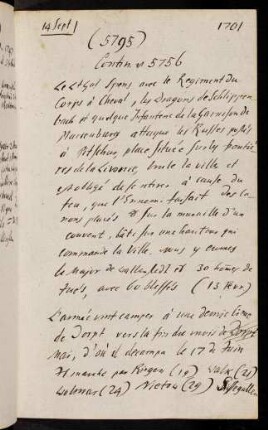 14 Sept 1701
(5795)
Contin. n 5756
Le Lt Gnl Spens avec le Regiment du
Corps à Cheval, les Dragons de Schlippen
bach et quelque Infanterie de la Garnison de
Marienbourg attaque les Russes postés
à Petschur, place située sur les frontiè
res de la Livonie, brule la ville et
est obligé de se retirer à cause du
feu, que l'Ennemi faisait des ca
nons placés sur la muraille d'un
couvent, bâti sur une hauteur qui
commande la Ville. nous y eumes
le Major de 30 hommes de
tués, avec blessés (13 Nov)
L'armée vint camper à une demie lieue
de Dorpt vers la fin du mois de
Mai, d'où il decampa le 17 de Juin
et marcha par Ringen (19) Walk (21)
Wolmar (24)